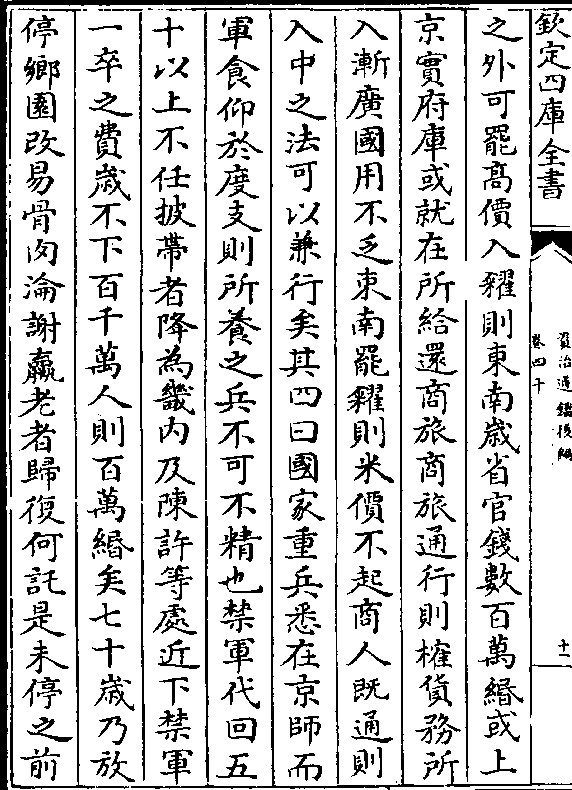 欽定四庫全書
資治通鑑後編
卷四十
十一
之外可罷高價入糴則東南歲省官錢數百萬緡或上
京實府庫或就在所給還商旅商旅通行則榷貨務所
入漸廣國用不乏東南罷糴則米價不起商人既通則
入中之法可以兼行矣其四曰國家重兵悉在京師而
軍食仰於度支則所養之兵不可不精也禁軍代回五
十以上不任披帶者降為畿内及陳許等處近下禁軍
一卒之費歲不下百千萬人則百萬緡矣七十歲乃放
停鄉園改易骨肉淪謝羸老者歸復何託是未停之前